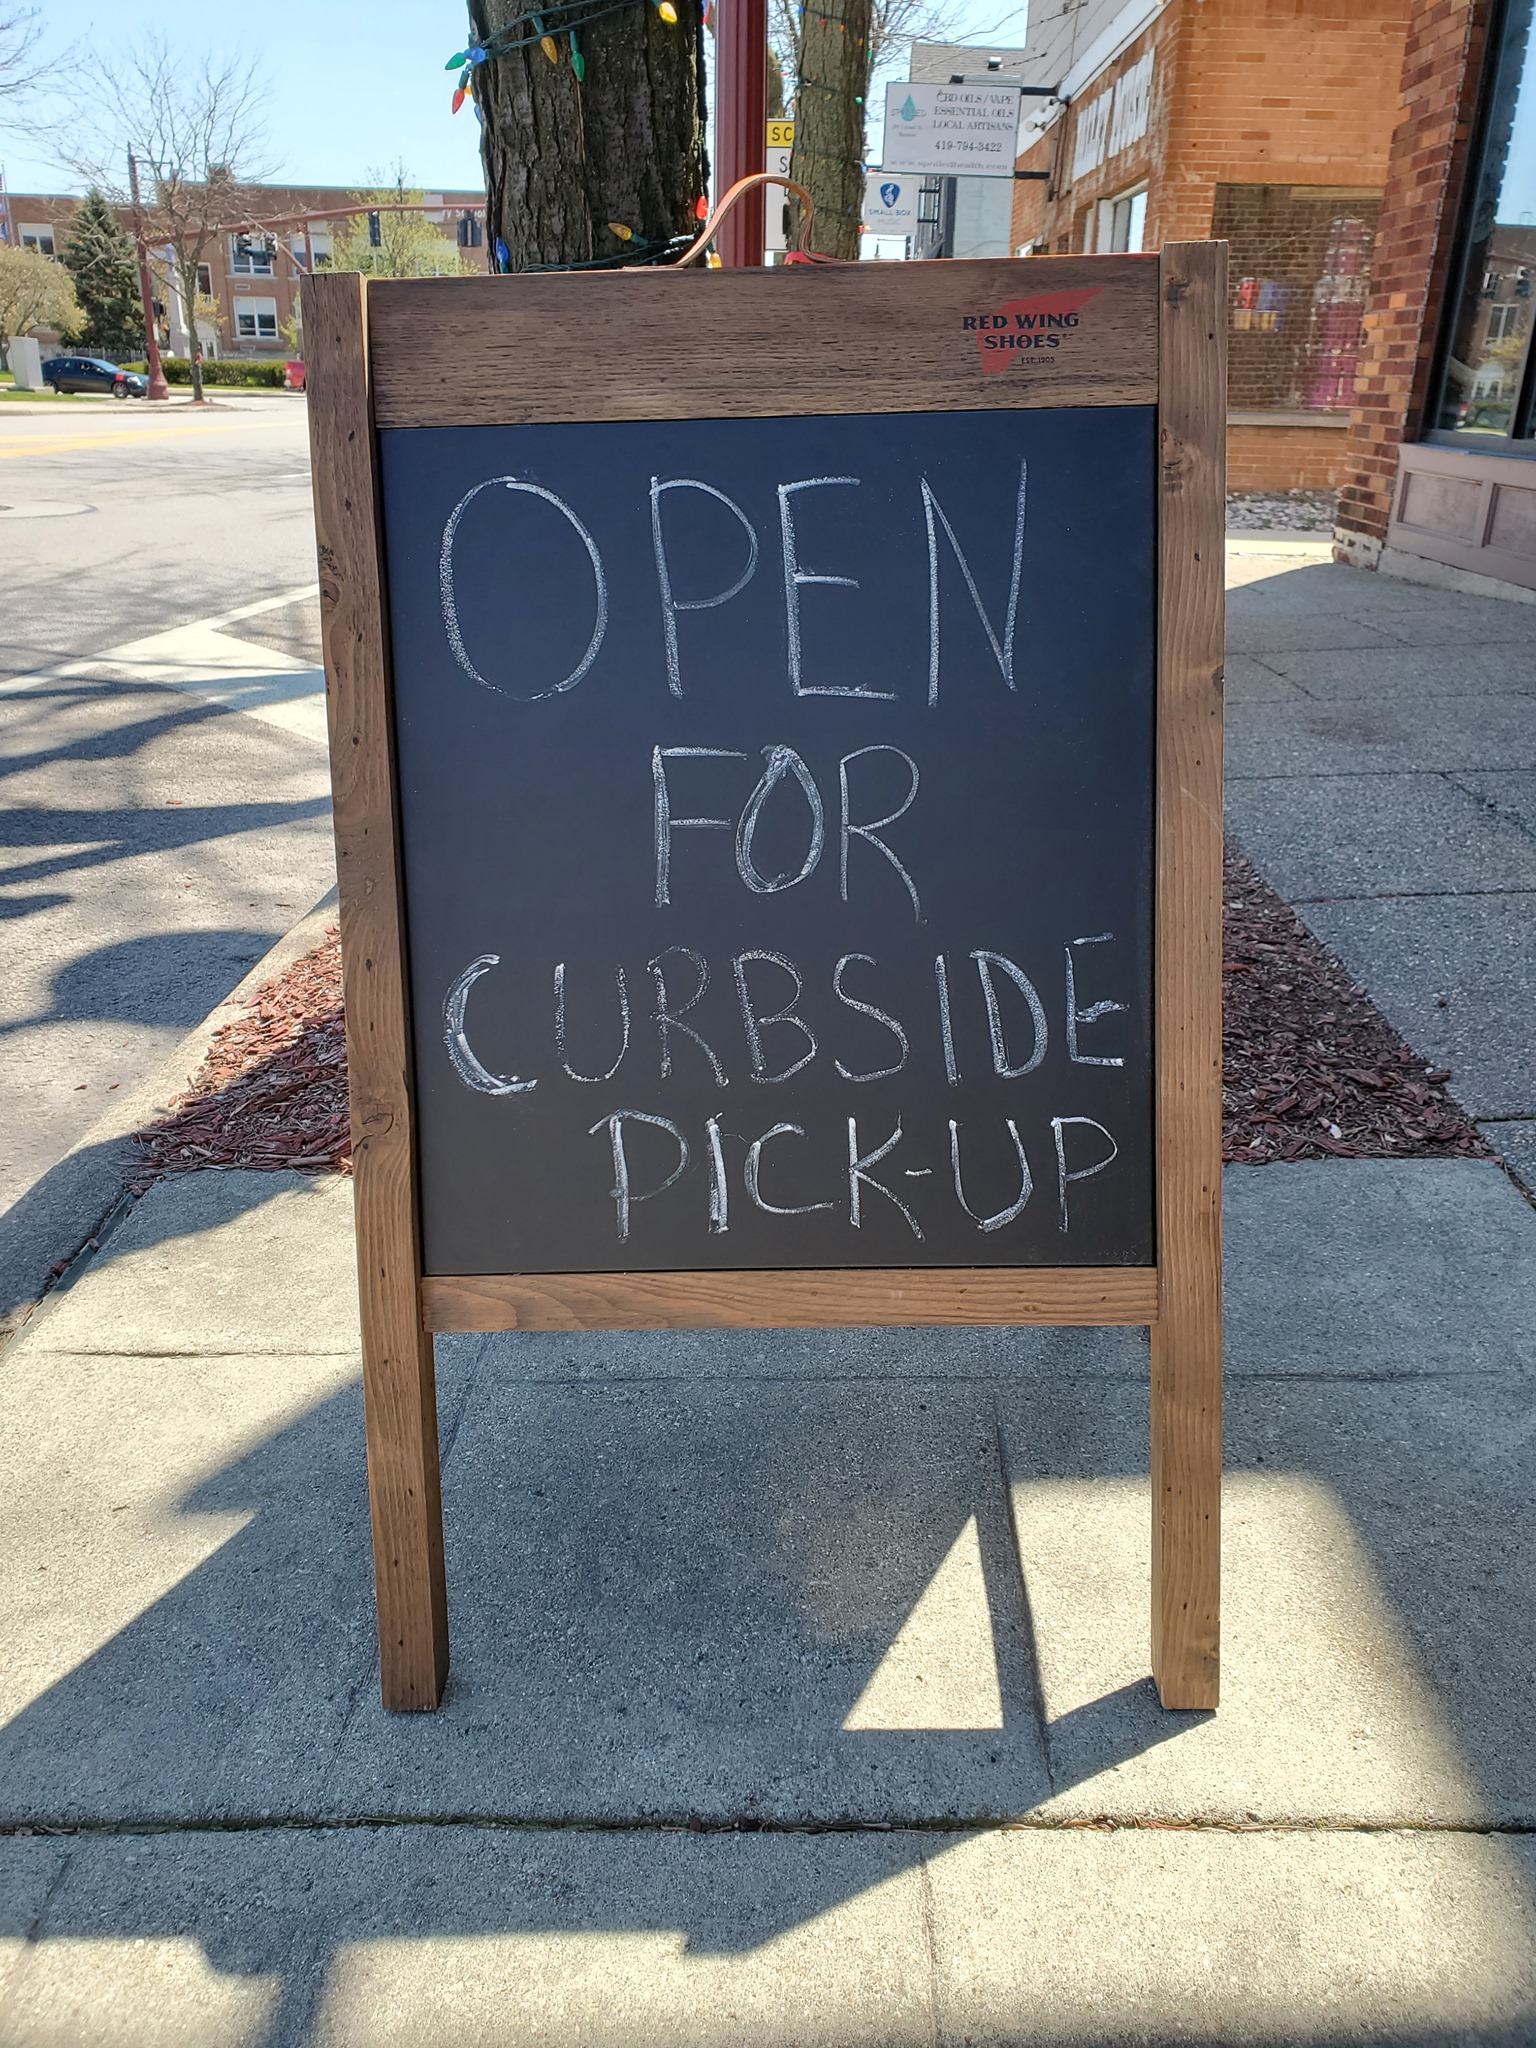 CBD OILS / VAPE
ESSENTIAL OILS
LOCAL ARTISANS
419-794-3422
www.spoiledhealth.com
SC
S
SMALL BOX
MUSIC
RED WING
SHOES
EST. 1905
OPEN
FOR
CURBSIDE
PICK-UP